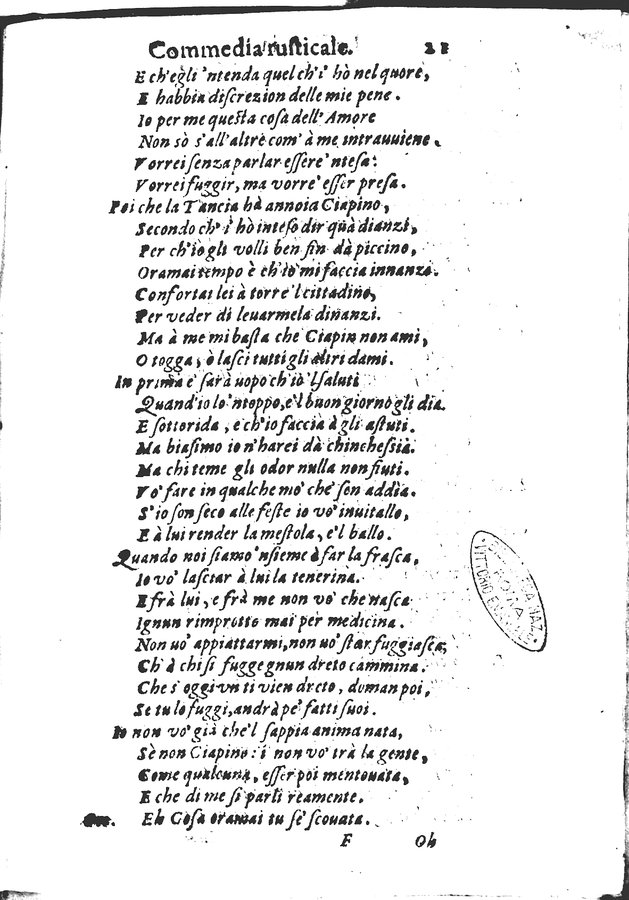 Commedia rusticale. 21
E ch'egli 'ntenda quel ch'i' hò nel quore,
E habbia discrezion delle mie pene.
Io per me questa cosa dell'Amore
Non sò s'all'altre com' à me intrauuiene.
Vorrei senza parlar essere 'ntesa:
Vorrei fuggir, ma vorre' esser presa.
Poi che la Tancia hà annoia Ciapino,
Secondo ch' i' hò inteso dir quà dianzi,
Per ch'io gli volli ben fin dà piccino,
Oramai tempo è ch'io mi faccia innanzi.
Confortai lei à torre 'l cittadino,
Per veder di leuarmela dinanzi.
Ma à me mi basta che Ciapin non ami,
O togga, ò lasci tutti gli altri dami.
In prima e' sarà uopo ch'io 'l saluti
Quand'io lo 'ntoppo, e'l buon giorno gli dia.
E sottorida, e ch'io faccia à gli astuti.
Ma biasimo io n'harei dà chinchessia.
Ma chi teme gli odor nulla non fiuti.
Vo' fare in qualche mo' che' son addia.
S'io son seco alle feste io vo' inuitallo,
E à lui render la mestola, e'l ballo.
Quando noi siamo 'nsieme à far la frasca,
Io vo' lasciar à lui la tenerina.
E frà lui, e frà me non vo' che nasca
Ignun rimprotto mai per medicina.
Non uo' appiattarmi, non uo' star fuggiasca;
Ch' à chi si fugge gnun dreto cammina.
Che s'oggi vn ti vien dreto, doman poi,
Se tu lo fuggi, andrà pe' fatti suoi.
Io non vo' già che'l sappia anima nata,
Sè non Ciapino: i' non vo' trà la gente,
Come qualcuna, esser poi mentouata,
E che di me si parli reamente.
Eh Cosa oramai tu sè scouata.
F Oh
ROMA
VITTORIO